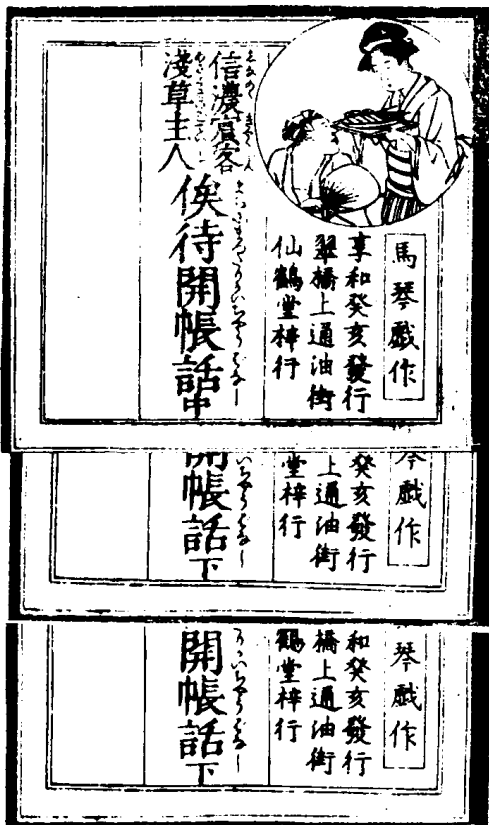 馬琴戯作
享和癸亥發行
翠橋上通油街
仙鶴堂梓行
信濃賓客
淺草主人
俟待開帳話中
琴戯作
癸亥發行
上通油街
堂梓行
開帳話下
いちやうばなし
琴戯作
和癸亥發行
橋上通油街
鶴堂梓行
開帳話下
いちやうばなし